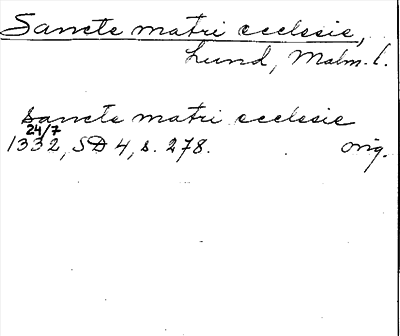 Sancte matri ecclesie,
Lund, Malm. l.
Sancte matri ecclesie
24/7
1332, SD 4, s. 278. orig.